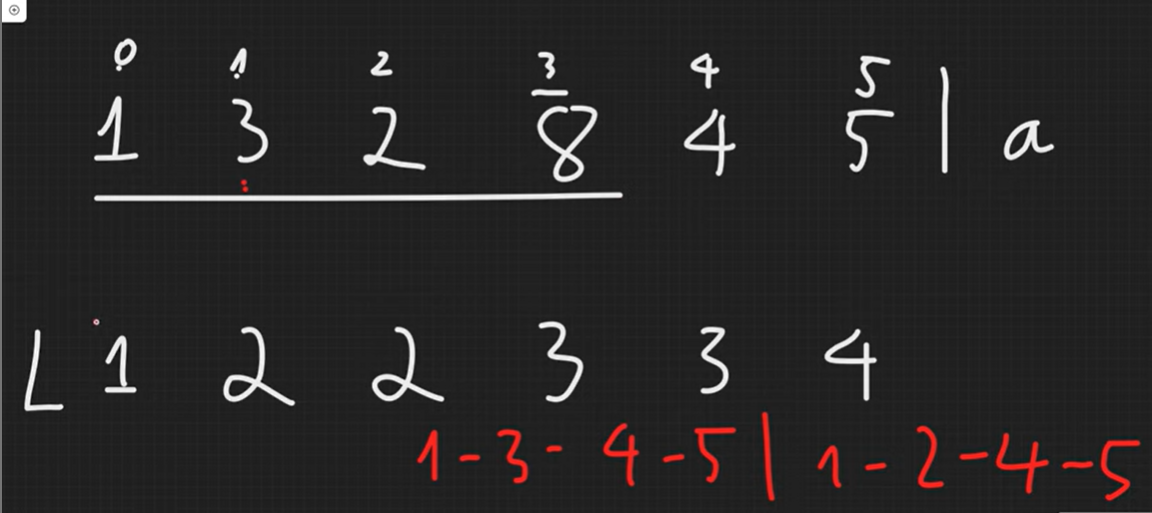 0 1 2 3 4 5
1 3 2 8 4 5 | a
L 1 2 2 3 3 4
1-3-4-5 | 1-2-4-5